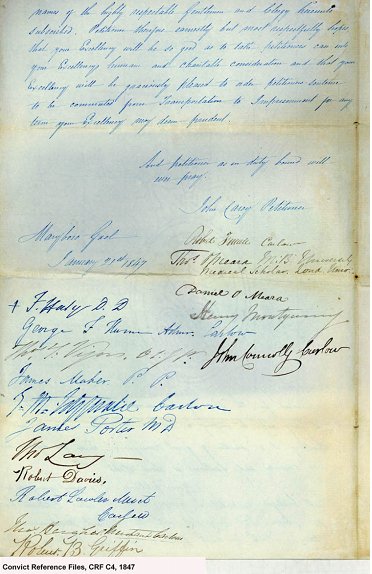 names of the highly respectable Gentlemen and Clergy hereunto
subscribed. Petitioner therefore earnestly but most respectfully hopes
that your Excellency will be so good as to take petitioners case into
your Excellencys humane and charitable consideration and that your
Excellency will be graciously pleased to order petitioners sentence
to be commuted from Transportation to Imprisonment for any
term your Excellency may deem prudent.
And petitioner as in duty bound will
ever pray.
John Casey Petitioner
Maryboro Gaol
January 1847
Carlow
Thos. Meara M.B University
Medical Scholar, Lond.
Daniel O Meara
Henry Montgomery
+ F. Haly D. D
George F. Carlow
Thos.
John Connolly Carlow
James Maher P. P.
Fitzgerald Carlow
James Porter MD
Thos
Robert Davies,
Robert Lawler Mercht
Carlow
Robert B. Griffin
Convict Reference Files, CRF C4, 1847